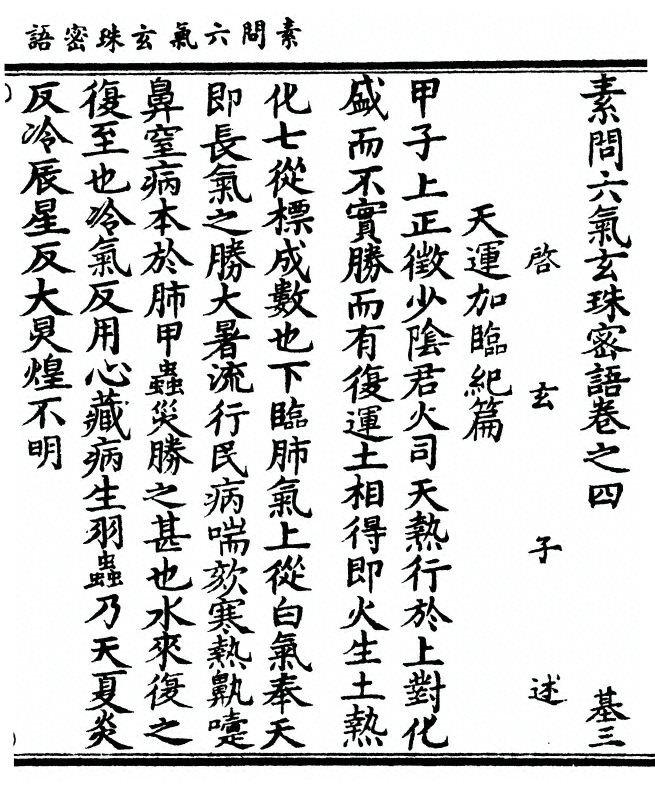 素問六氣玄珠密語
素問六氣玄珠密語卷之四 基三
啓玄子述
天運加臨紀篇
甲子上正徵少陰君火司天熱行於上對化
盛而不實勝而有復運土相得即火生土熱
化七從標成數也下臨肺氣上從白氣奉天
即長氣之勝大暑流行民病喘欬寒熱鼽嚏
鼻窒病本於肺甲蟲災勝之甚也水來復之
復至也冷氣反用心藏病生羽蟲乃天夏炎
反冷辰星反大炅煌不明